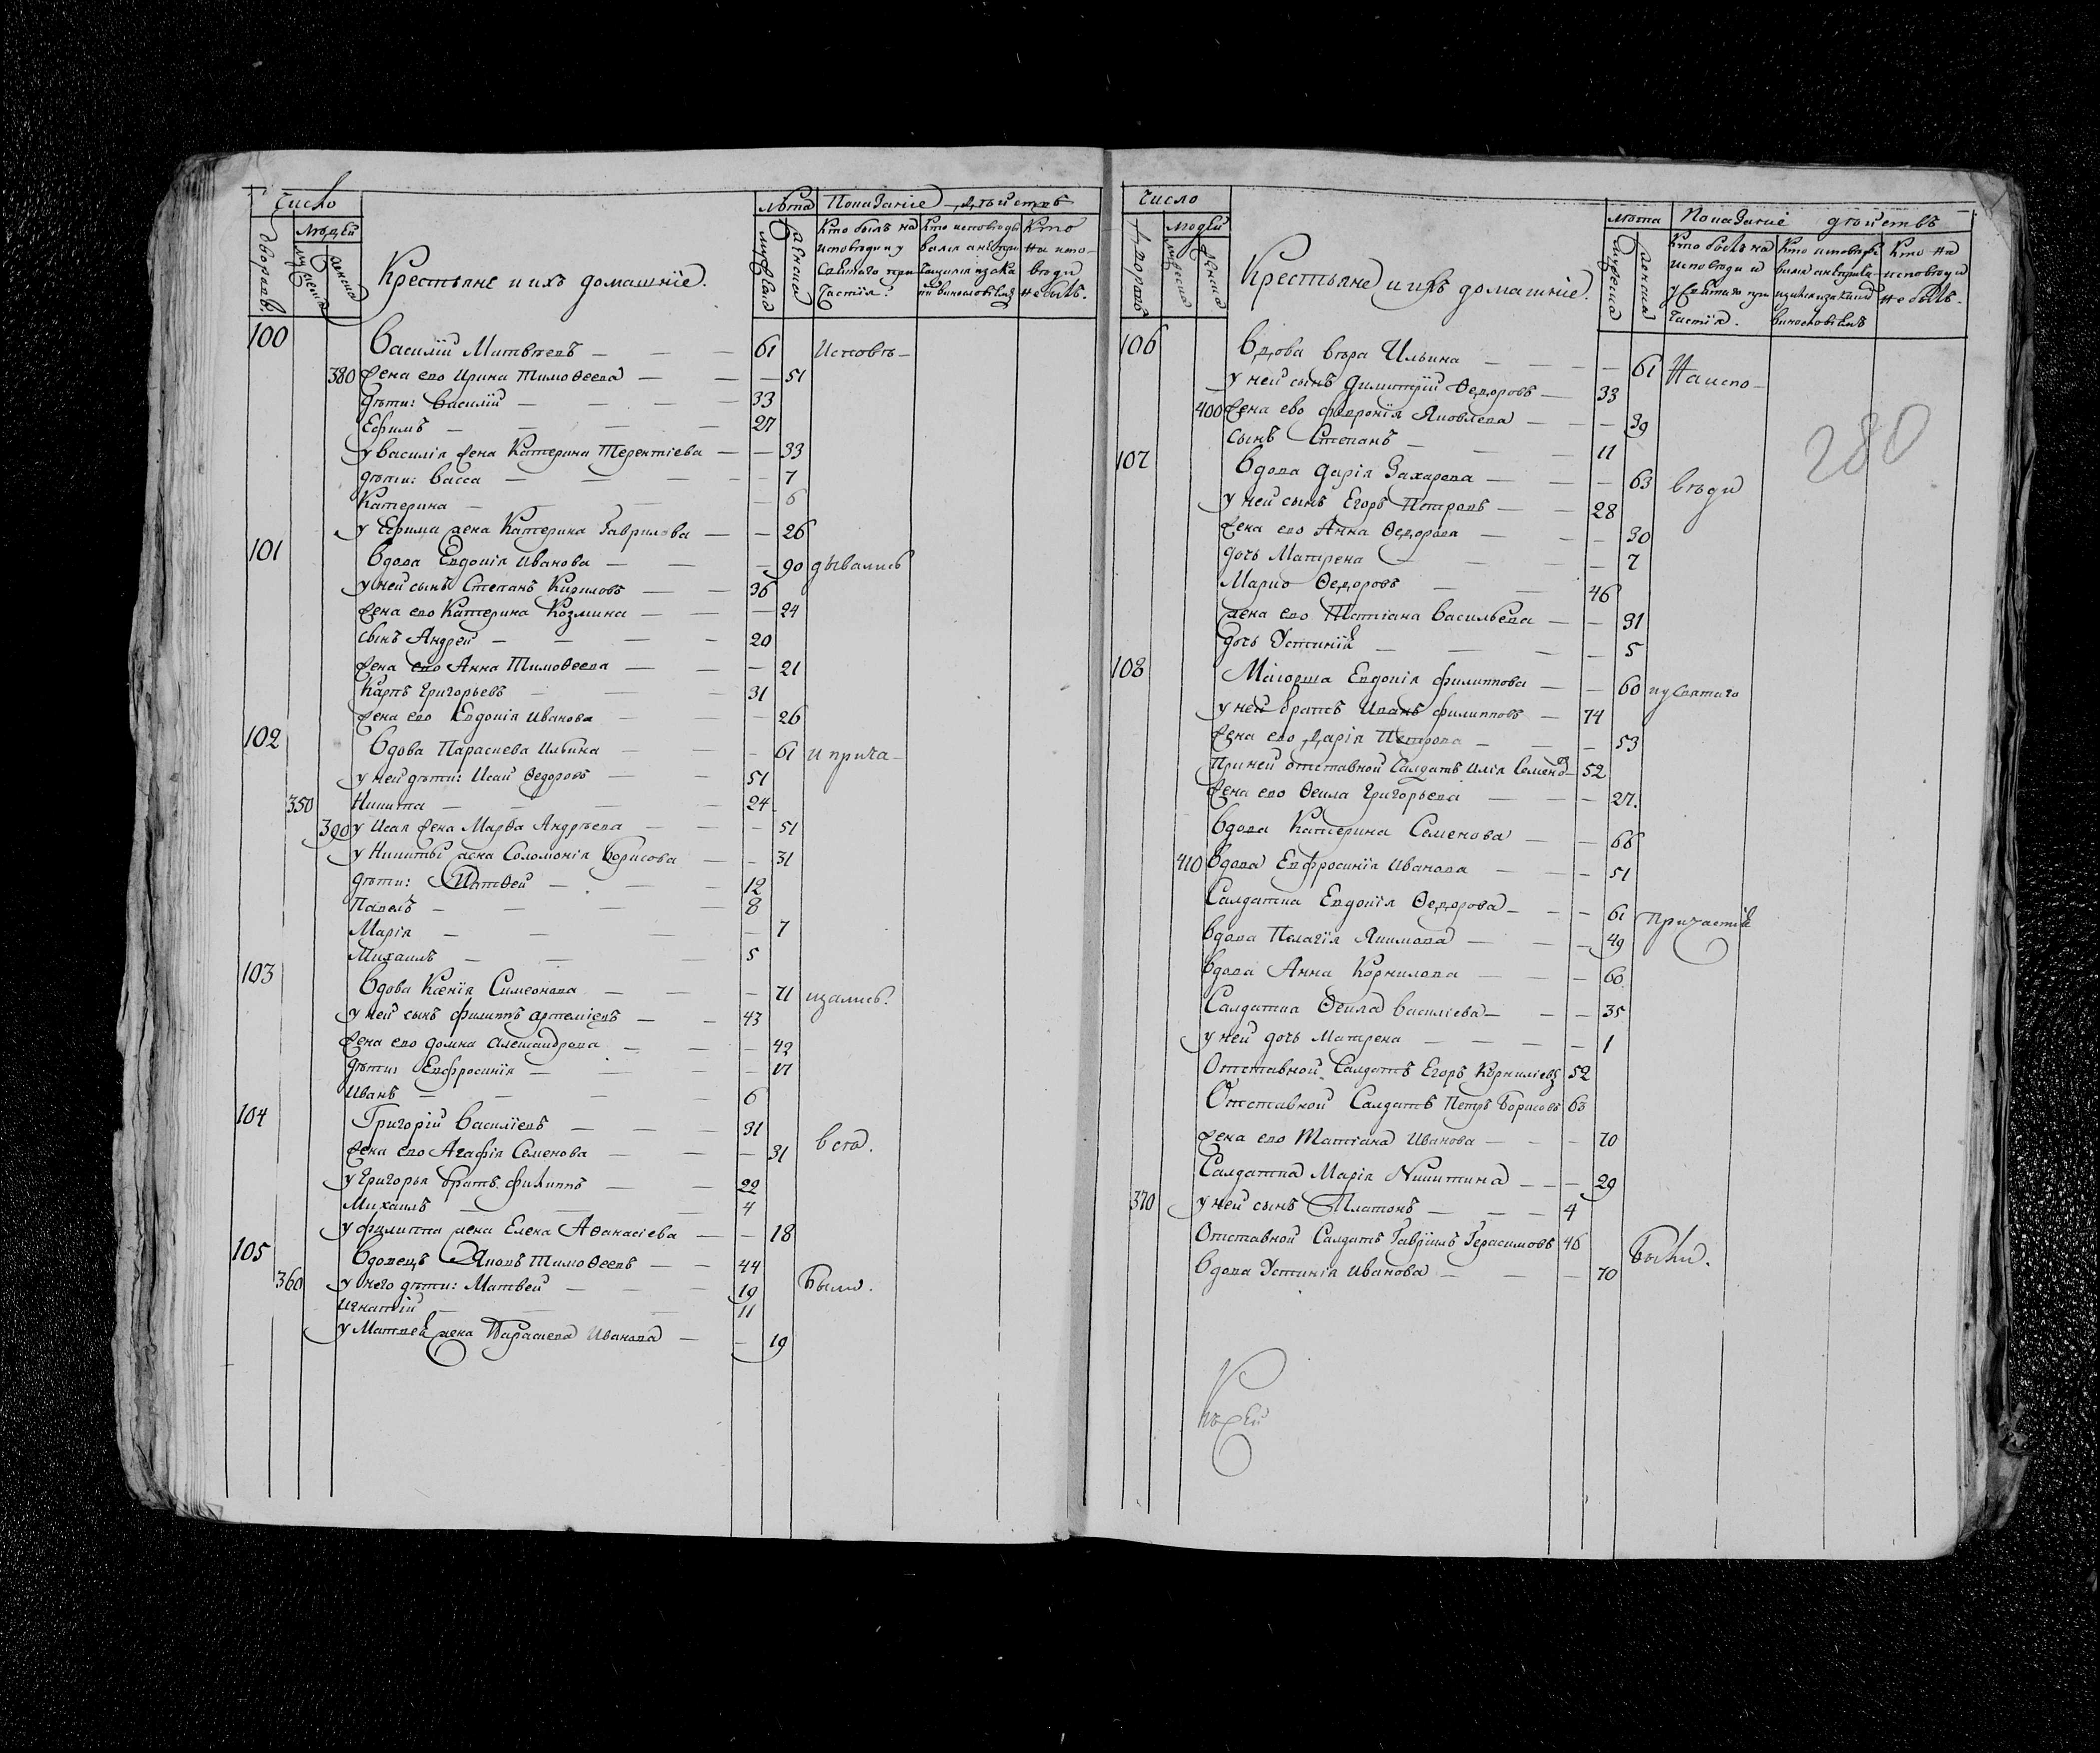 Число
Людей
дворовъ.
мужеска
женска
Крестьяне и ихъ домашніе.
Лѣта
мужеска
женска
Показаніе дѣйствъ
Кто былъ на исповѣди и у Святаго причастія.
Кто исповѣдывался а не причащался и за какимъ винословіемъ
Кто на исповѣди не былъ.
100 Василій Матвѣевъ — 61 Исповѣ-
380 жена ево Ирина Тимоѳеева — 51
дѣти: Василій — 33
Ефимъ — 27
у Василія жена Катерина Терентіева — 33
дѣти: Васса — 7
Катерина — 6
у Ефима жена Катерина Гаврилова — 26
101 Вдова Евдокія Иванова — 90 дывались
у ней сынъ Степанъ Кириловъ — 36
жена ево Катерина Козмина — 24
сынъ Андрей — 20
жена ево Анна Тимоѳеева — 21
Карпъ Григорьевъ — 31
жена ево Евдокія Иванова — 26
102 Вдова Параскева Ильина — 61 и прича-
у ней дѣти: Исай Ѳедоровъ — 51
350 Никита — 24
390 у Исая жена Марѳа Андрѣева — 51
у Никиты жена Соломонія Борисова — 31
дѣти: Матѳей — 12
Павелъ — 8
Марія — 7
Михаилъ — 5
103 Вдова Ксенія Симеонова — 71 щались.
у ней сынъ Филиппъ Артеміевъ — 43
жена ево Домна Александрова — 42
дѣти: Евфросинія — 17
Иванъ — 6
104 Григорій Василіевъ — 31
жена ево Агафія Семенова — 31 всѣ.
у Григорья братъ Филиппъ — 22
Михаилъ — 4
у Филиппа жена Елена Аѳанасіева — 18
105 Вдовецъ Яковъ Тимоѳеевъ — 44
360 у него дѣти: Матвей — 19 Были.
Игнатій — 11
у Матвея жена Параскева Иванова — 19
Число
Людей
дворовъ
мужеска
женска
Крестьяне и ихъ домашніе.
Лѣта
мужеска
женска
Показаніе дѣйствъ
Кто былъ на исповѣди и у Святаго причастія.
Кто исповѣдывался а не причащался и за какимъ винословіемъ
Кто на исповѣди не былъ.
280
106 Вдова Вѣра Ильина — 61 На испо-
у ней сынъ Димитрій Ѳедоровъ — 33
400 жена ево Февронія Яковлева — 39
сынъ Степанъ — 11
107 Вдова Дарія Захарова — 63 вѣди
у ней сынъ Егоръ Петровъ — 28
жена ево Анна Ѳедорова — 30
дочь Матрена — 7
Марко Ѳедоровъ — 46
жена ево Татіана Васильева — 31
дочь Устинія — 5
108 Маіорша Евдокія Филиппова — 60 и у Святаго
у ней братъ Иванъ Филипповъ — 74
жена ево Дарія Петрова — 53
При ней отставной Салдатъ Илія Семеновъ 52
жена ево Ѳекла Григорьева — 27.
Вдова Катерина Семенова — 66
410 Вдова Евфросинія Иванова — 51
Салдатка Евдокія Ѳедорова — 61 причастія
Вдова Пелагія Якимова — 49
Вдова Анна Корнилова — 60
Салдатка Ѳекла Василіева — 35
у ней дочь Матрена — 1
Отставной Салдатъ Егоръ Корниліевъ 52
Отставной Салдатъ Петръ Борисовъ 63
жена ево Татіана Иванова — 70
Салдатка Марія Никитина — 29
370 у ней сынъ Платонъ — 4
Отставной Салдатъ Гавріилъ Герасимовъ 46
Вдова Устинія Иванова — 70 Были.